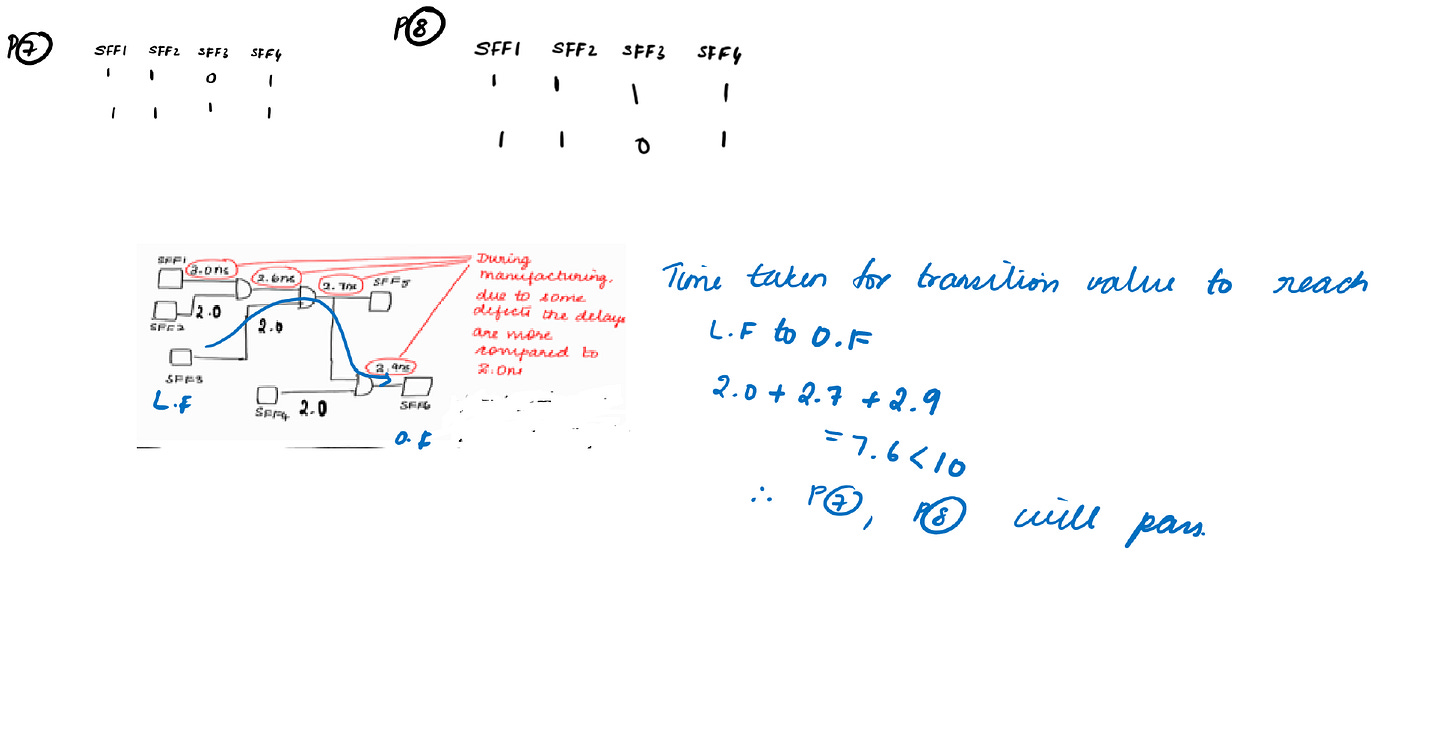 P⑦
SFF1 SFF2 SFF3 SFF4
1 1 0 1
1 1 1 1
P⑧
SFF1 SFF2 SFF3 SFF4
1 1 1 1
1 1 0 1
SFF1
3.0ns
2.6ns
2.7ns
SFF5
2.0
SFF2
2.0
SFF3
L.F
2.9ns
SFF4 2.0
SFF6
O.F
During
manufacturing,
due to some
defects the delays
are more
compared to
2.0ns
Time taken for transition value to reach
L.F to O.F
2.0 + 2.7 + 2.9
= 7.6 < 10
∴ P⑦, P⑧ will pass.